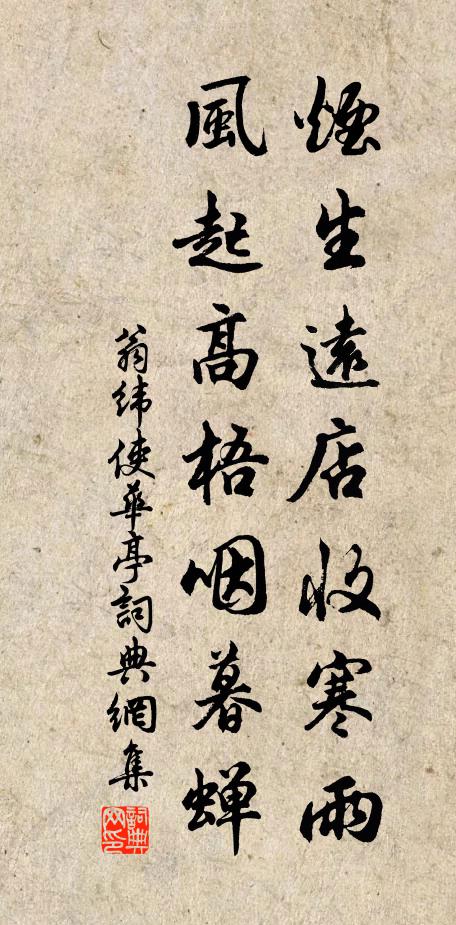 煙生遠店收寒雨
風起高梧咽暮蟬
翁緯使華亭詞典網集
詞典网印